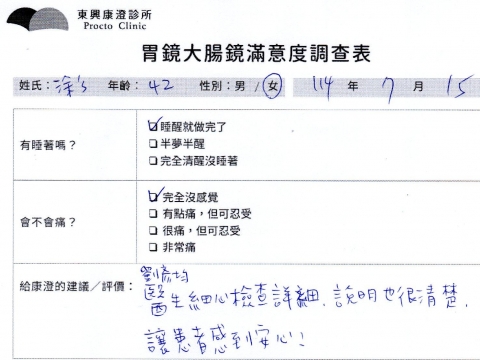 東興康澄診所
Procto Clinic
胃鏡大腸鏡滿意度調查表
姓氏：涂's 年齡：42 性別：男 / 女 114 年 7 月 15
有睡著嗎？
☑ 睡醒就做完了
☐ 半夢半醒
☐ 完全清醒沒睡著
會不會痛？
☑ 完全沒感覺
☐ 有點痛，但可忍受
☐ 很痛，但可忍受
☐ 非常痛
給康澄的建議／評價：
劉彥均
醫生細心檢查詳細，說明也很清楚，
讓患者感到安心！